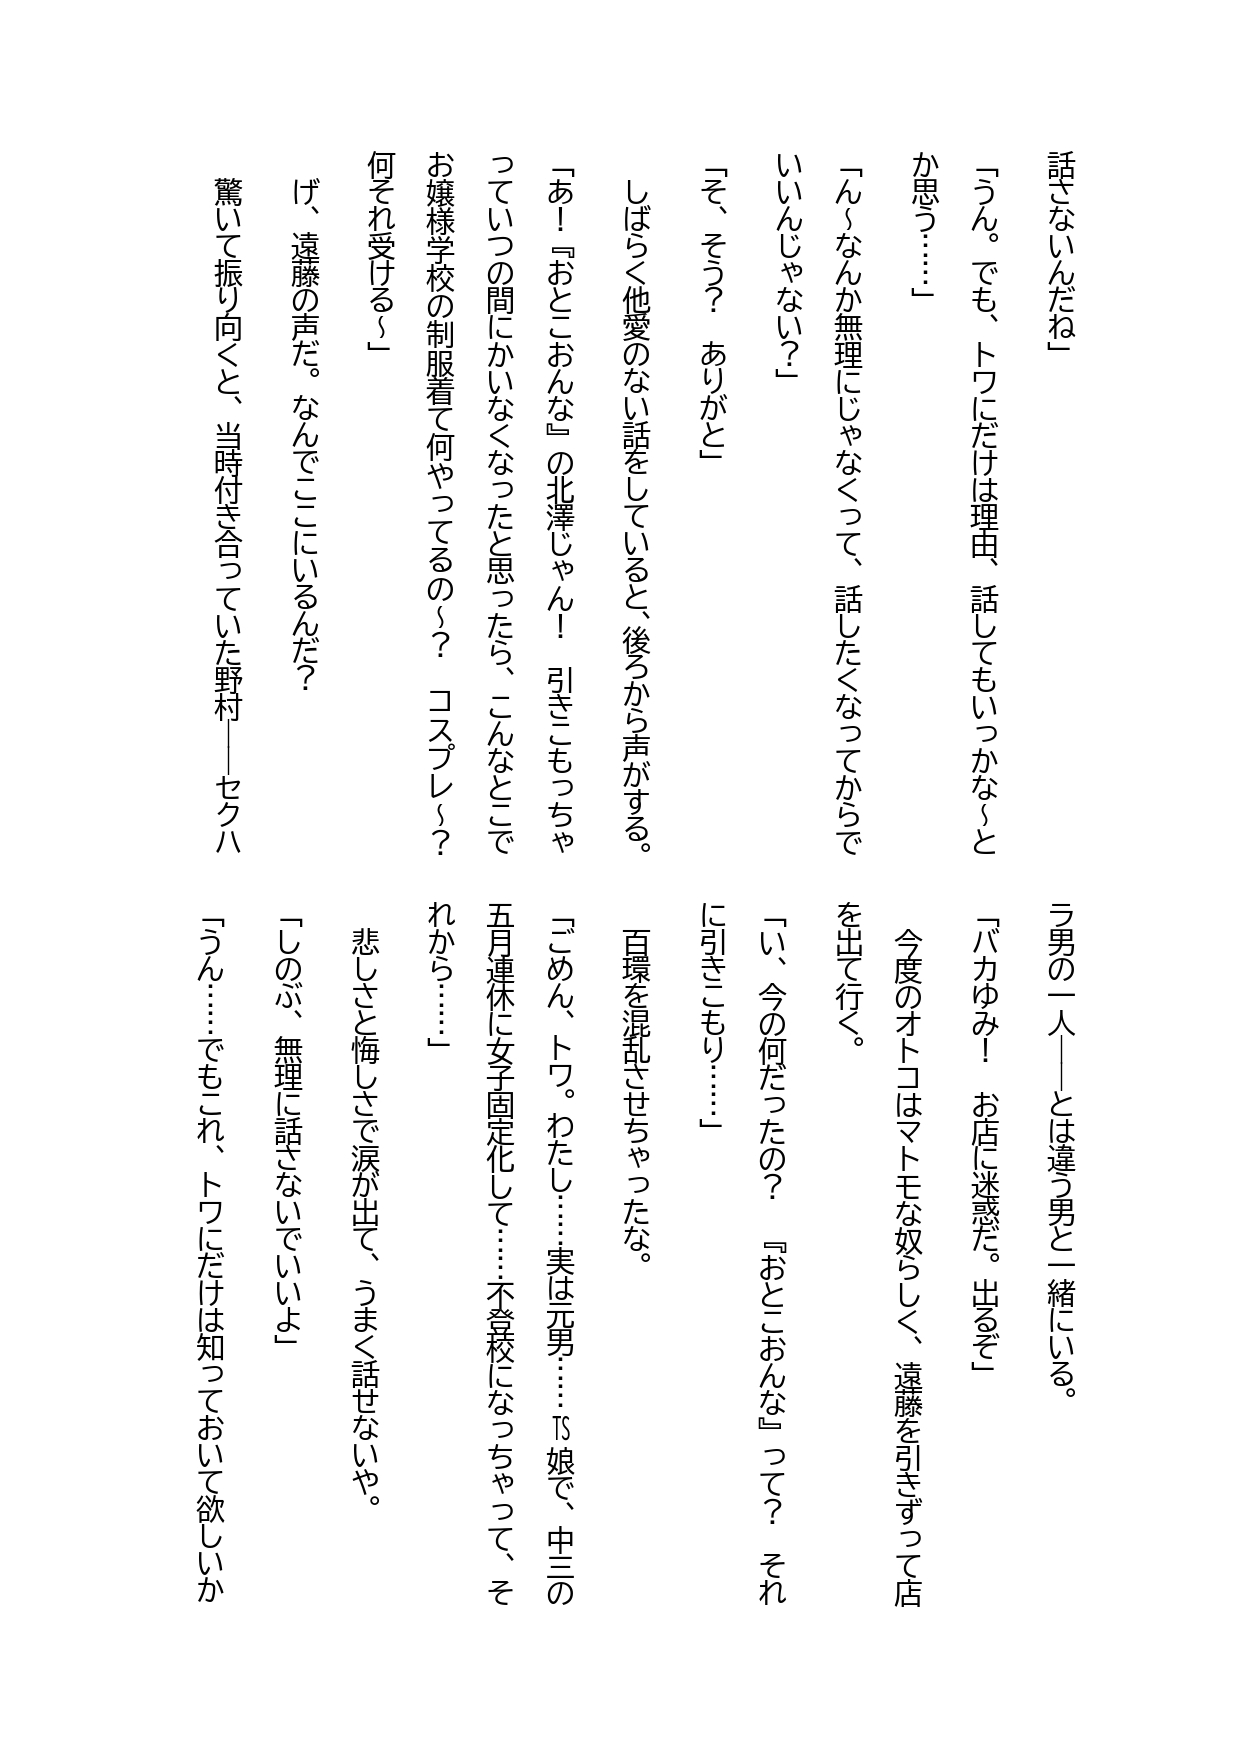 話さないんだね」
「うん。でも、トワにだけは理由、話してもいっかな～と
か思う……」
「ん～なんか無理にじゃなくって、話したくなってからで
いいんじゃない？」
「そ、そう？　ありがと」
　しばらく他愛のない話をしていると、後ろから声がする。
「あ！『おとこおんな』の北澤じゃん！　引きこもっちゃ
っていつの間にかいなくなったと思ったら、こんなとこで
お嬢様学校の制服着て何やってるの～？　コスプレ～？
何それ受ける～」
　げ、遠藤の声だ。なんでここにいるんだ？
　驚いて振り向くと、当時付き合っていた野村――セクハ
ラ男の一人――とは違う男と一緒にいる。
「バカゆみ！　お店に迷惑だ。出るぞ」
　今度のオトコはマトモな奴らしく、遠藤を引きずって店
を出て行く。
「い、今の何だったの？　『おとこおんな』って？　それ
に引きこもり……」
　百環を混乱させちゃったな。
「ごめん、トワ。わたし……実は元男……TS娘で、中三の
五月連休に女子固定化して……不登校になっちゃって、そ
れから……」
　悲しさと悔しさで涙が出て、うまく話せないや。
「しのぶ、無理に話さないでいいよ」
「うん……でもこれ、トワにだけは知っておいて欲しいか